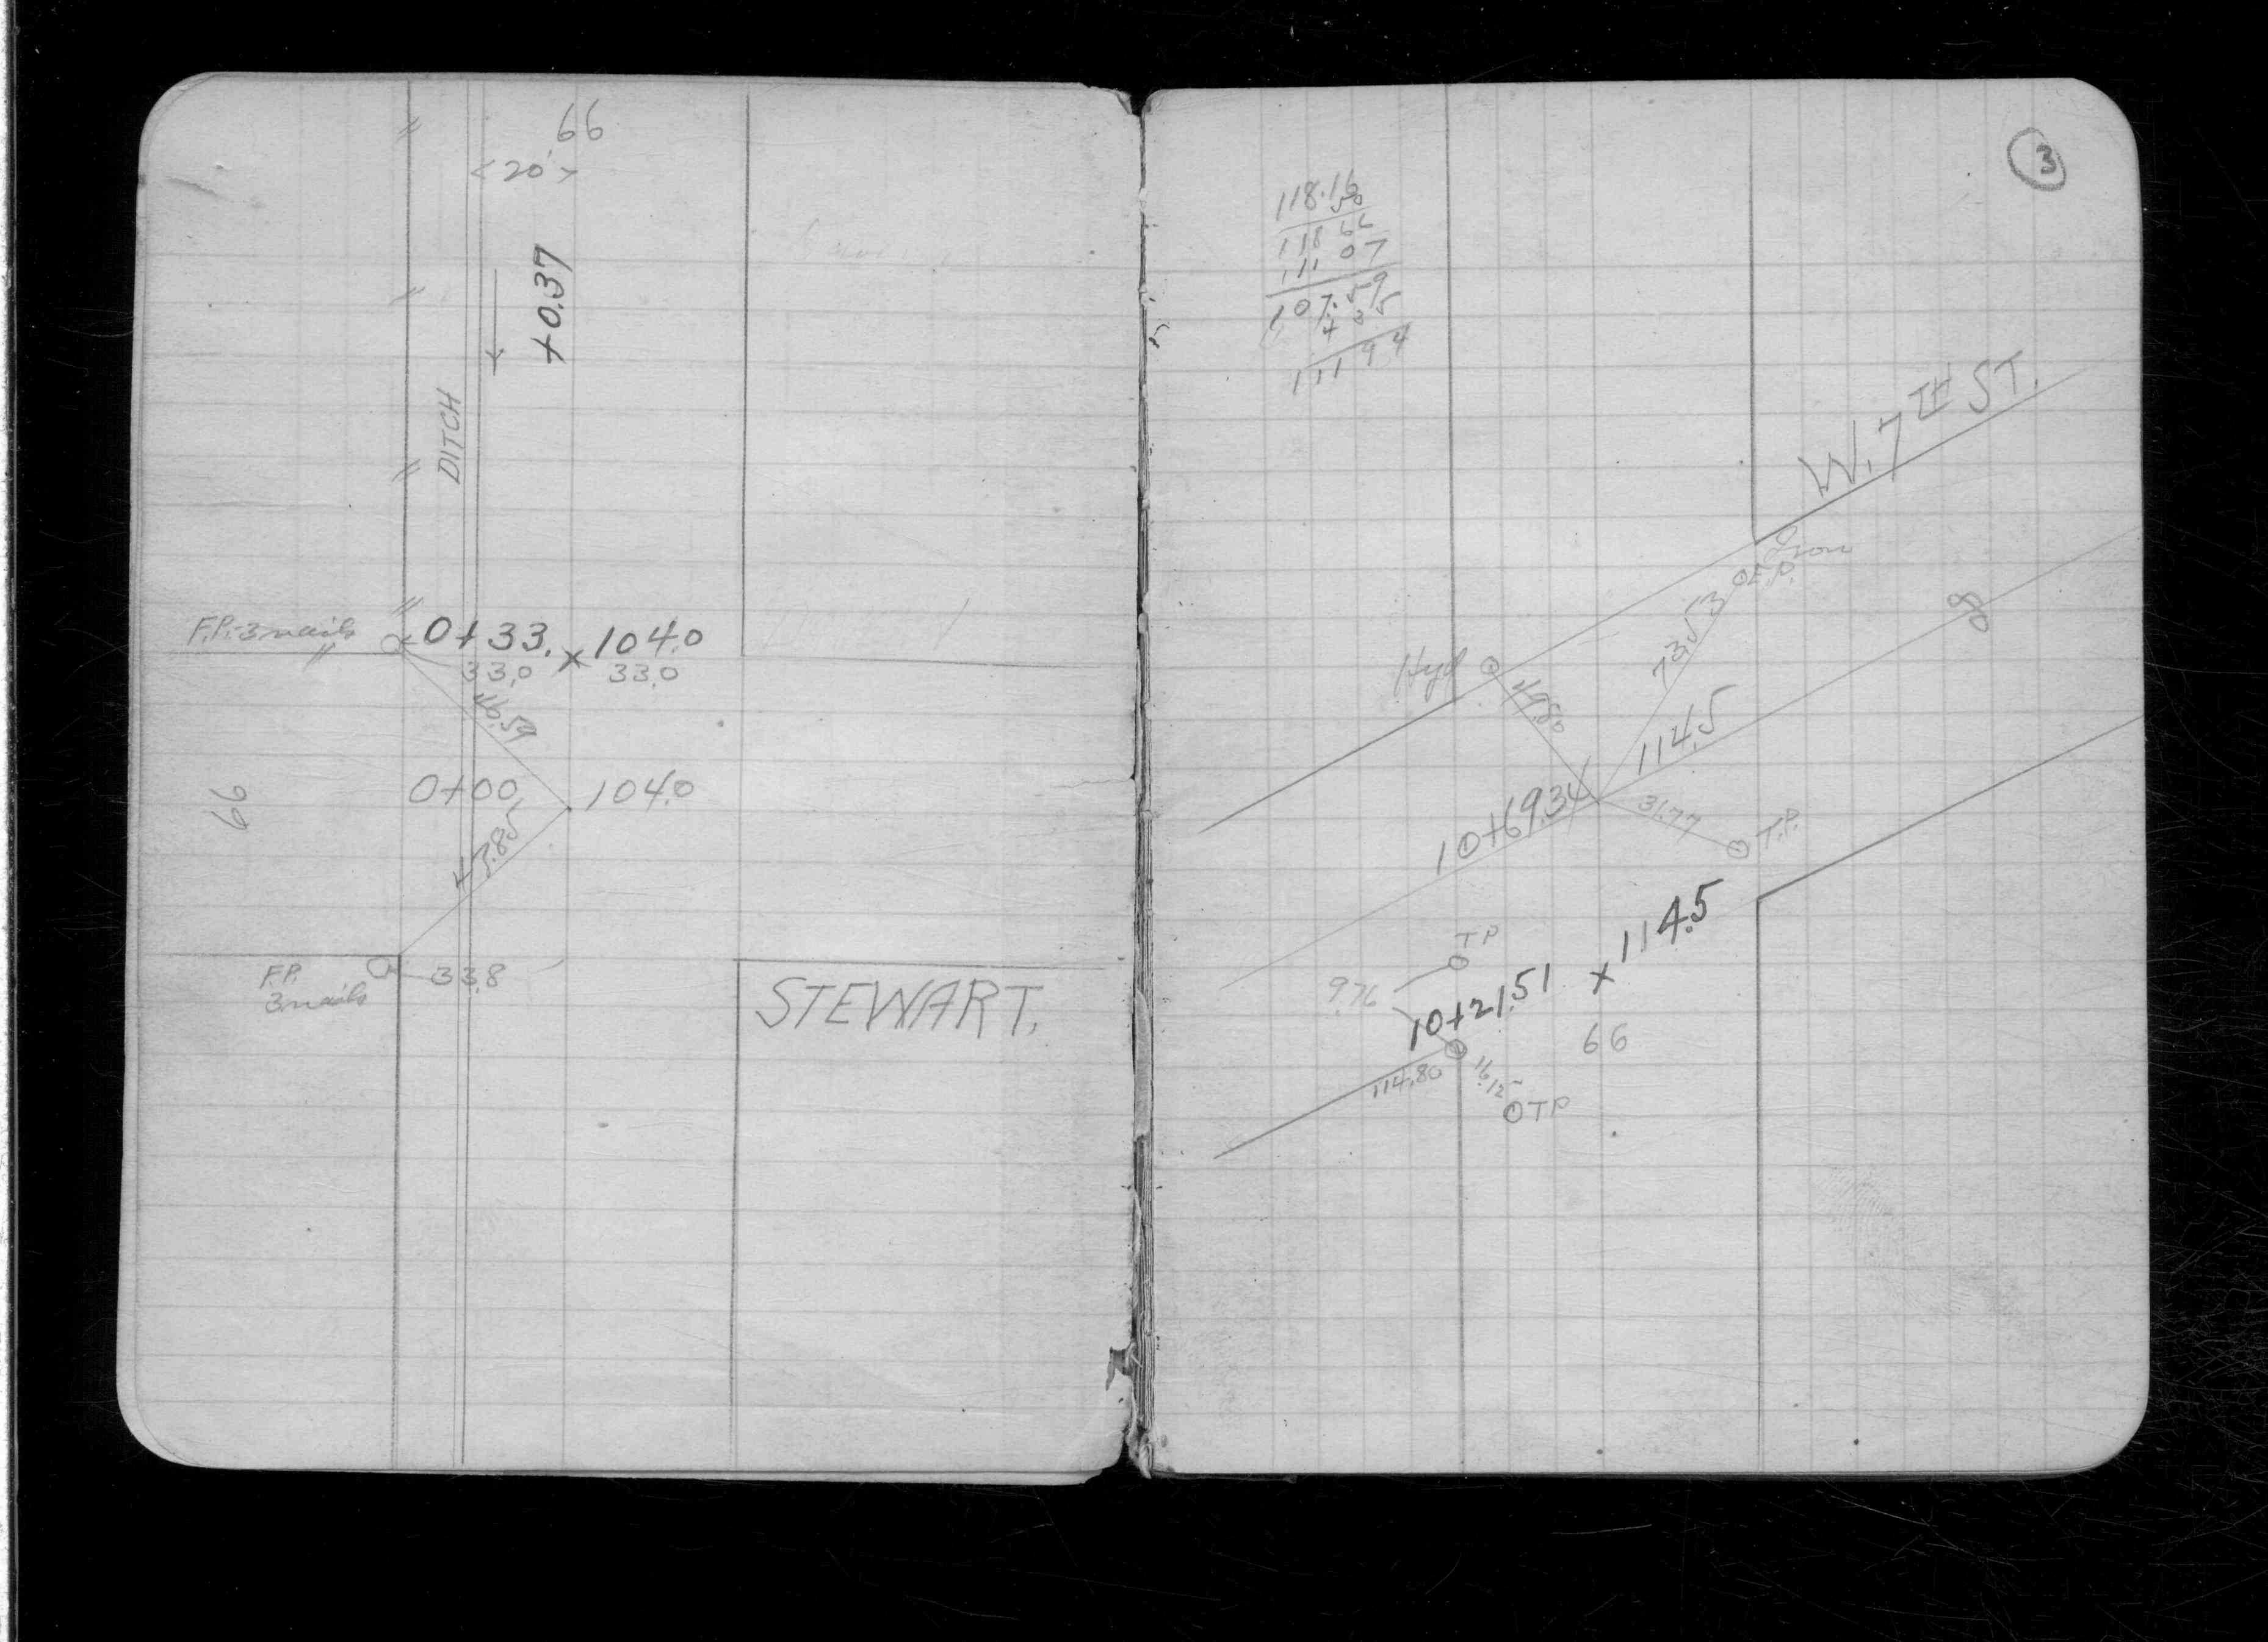 66
<20'>
+0.37
DITCH
F.P.-3 nails
0+33. x 104.0
33.0 33.0
46.59
0+00 104.0
66
47.85
F.P.
3 nails
33.8
STEWART.
3
118.16
50
118 66
11 07
107.59
4 35
111 94
W. 7TH ST.
Iron
F.P.
73.53
80
Hyd
49.80
114.5
10+69.34
31.77
T.P.
T P
9.76
10+21.51 x 114.5
66
114.80
16.12
T P